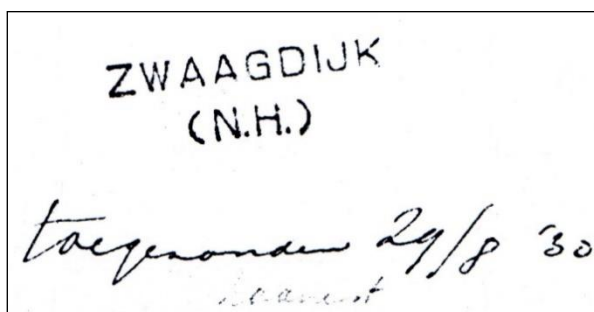 ZWAAGDIJK
(N.H.)
toegezonden 29/8 '30